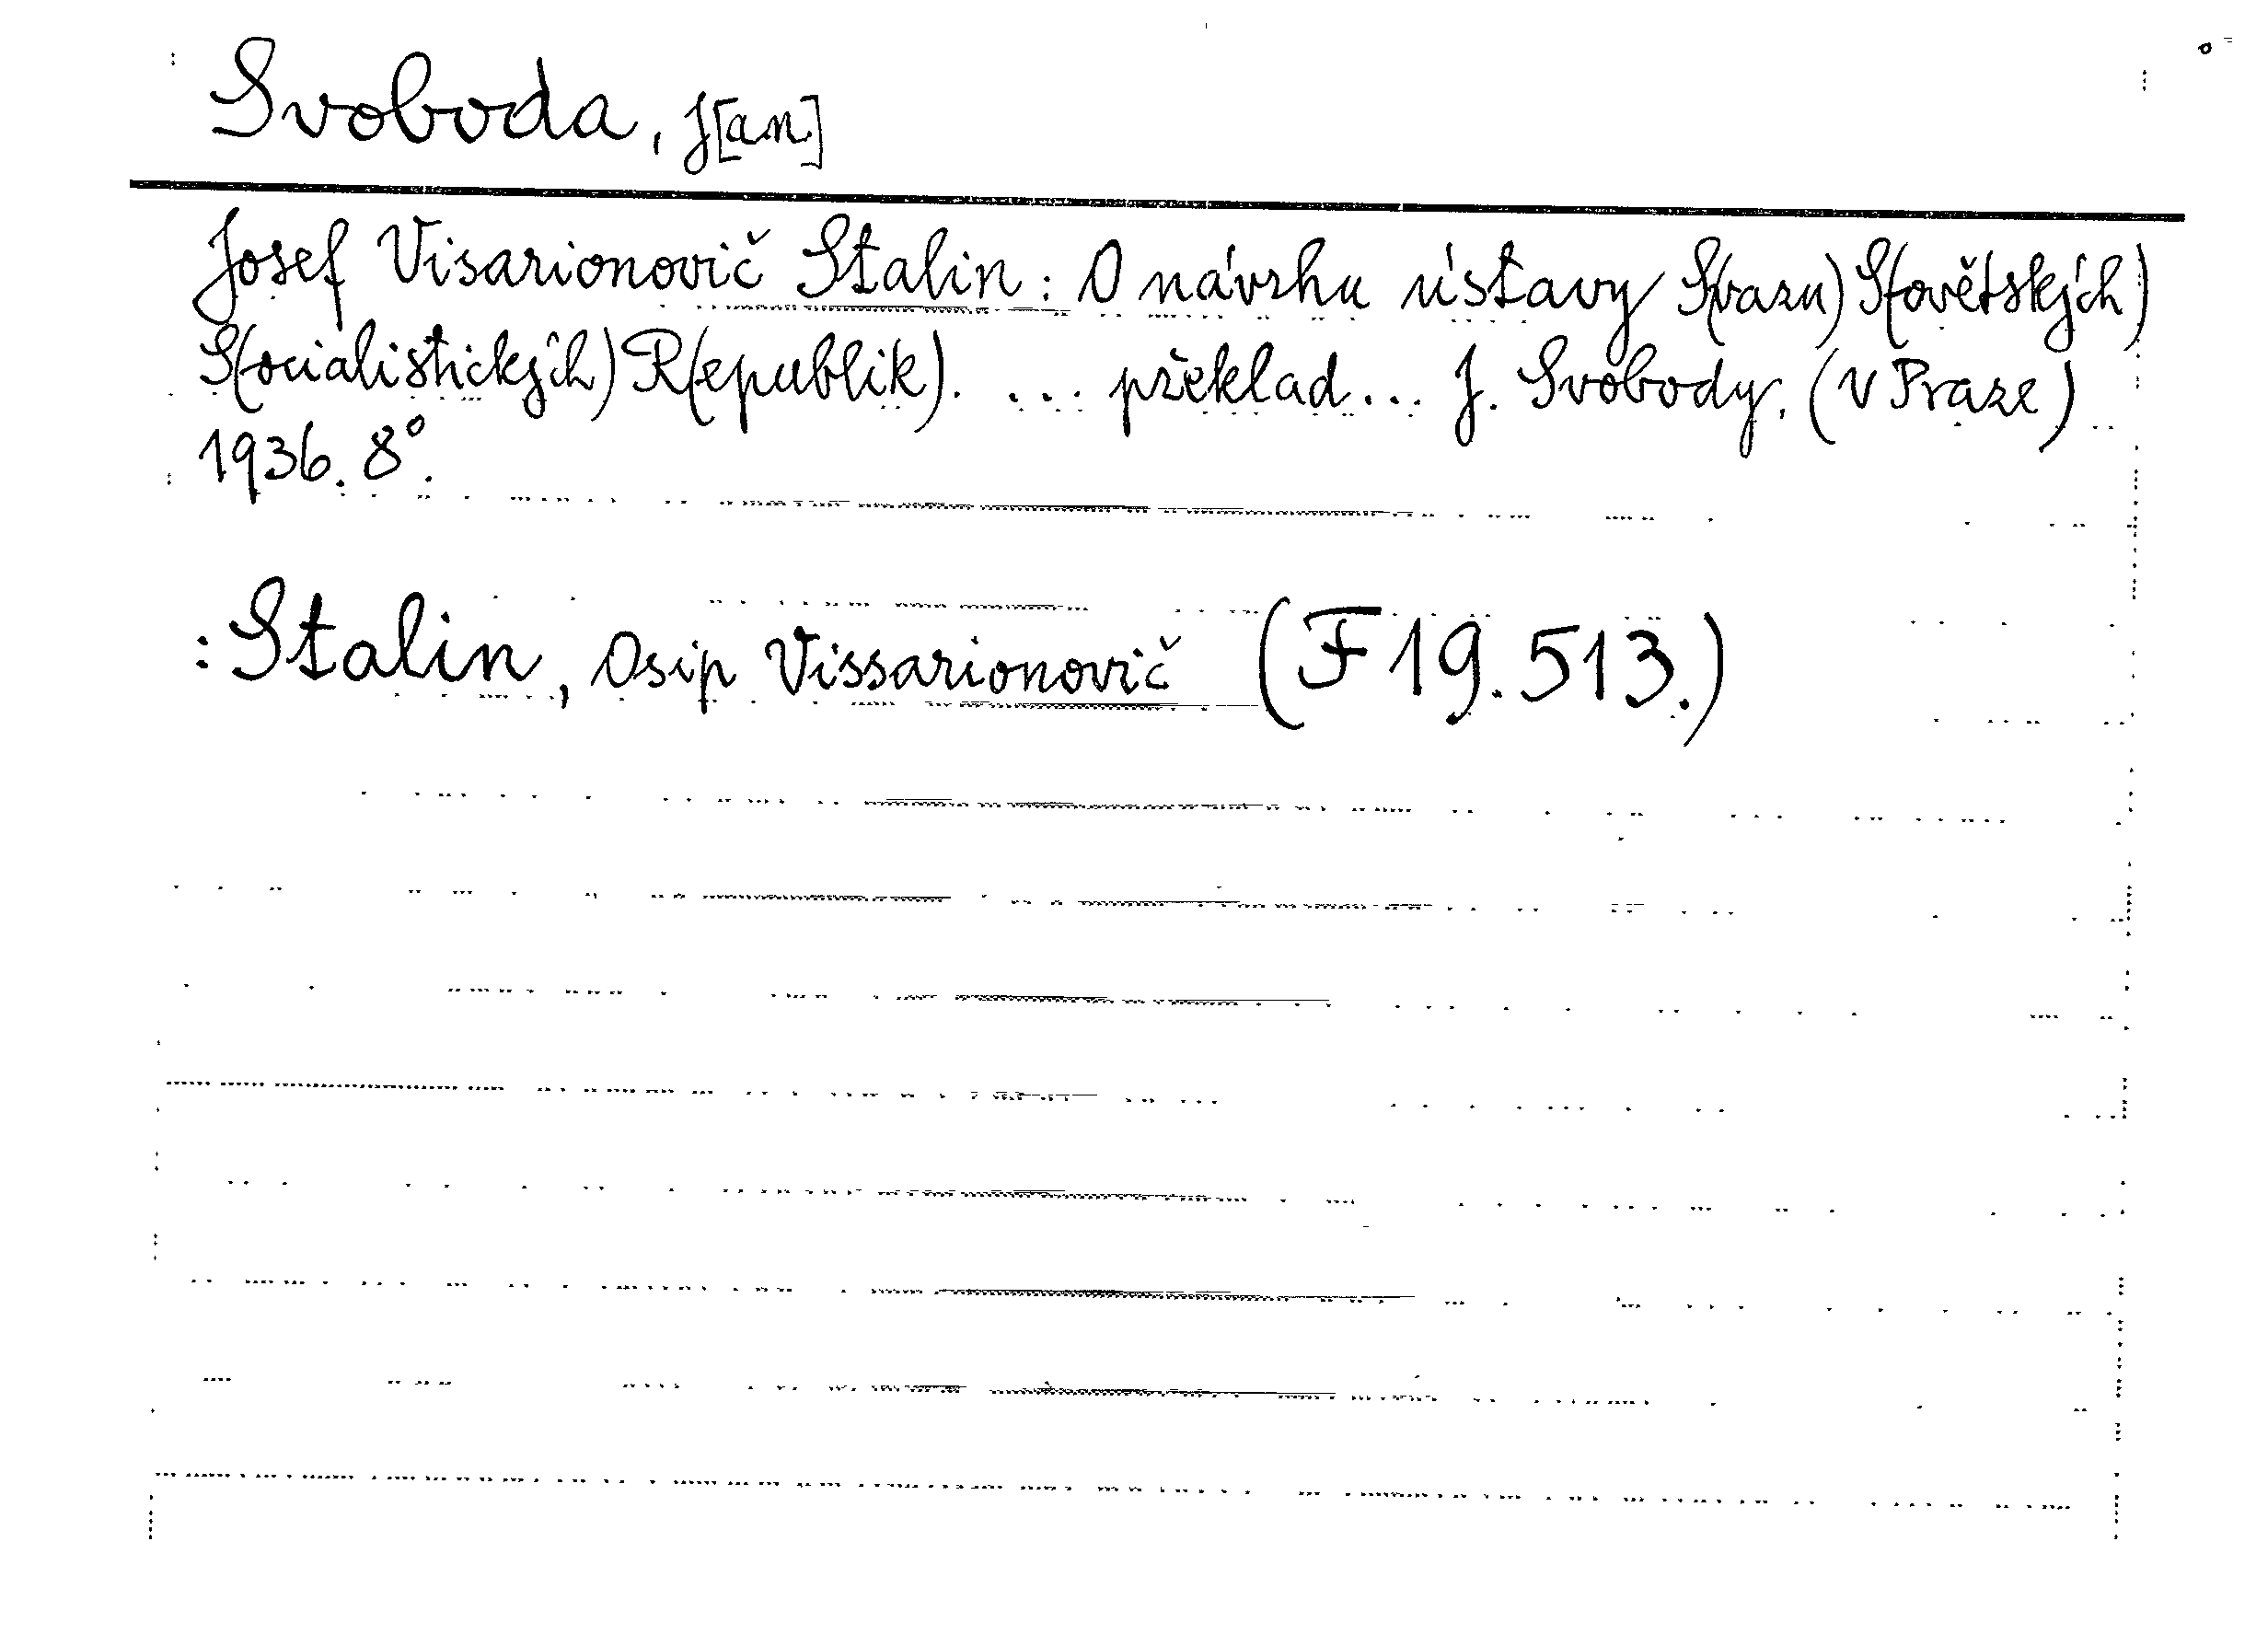 Svoboda, J[an]
Josef Visarionovič Stalin: O návrhu ústavy S(vazu) S(ovětských)
S(ocialistických) R(epublik). ... překlad... J. Svobody. (V Praze)
1936. 8°.
: Stalin, Osip Vissarionovič (F 19.513.)